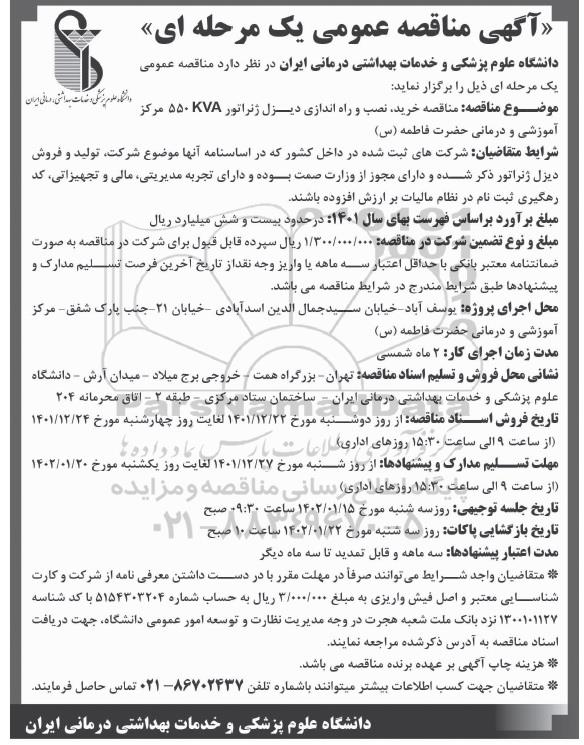 «آگهی مناقصه عمومی یک مرحله ای»
دانشگاه علوم پزشکی و خدمات بهداشتی، درمانی ایران
دانشگاه علوم پزشکی و خدمات بهداشتی درمانی ایران در نظر دارد مناقصه عمومی
یک مرحله ای ذیل را برگزار نماید:
موضوع مناقصه: مناقصه خرید، نصب و راه اندازی دیزل ژنراتور ۵۵۰ KVA مرکز
آموزشی و درمانی حضرت فاطمه (س)
شرایط متقاضیان: شرکت های ثبت شده در داخل کشور که در اساسنامه آنها موضوع شرکت، تولید و فروش
دیزل ژنراتور ذکر شده و دارای مجوز از وزارت صمت بوده و دارای تجربه مدیریتی، مالی و تجهیزاتی، کد
رهگیری ثبت نام در نظام مالیات بر ارزش افزوده باشند.
مبلغ برآورد براساس فهرست بهای سال ۱۴۰۱: درحدود بیست و شش میلیارد ریال
مبلغ و نوع تضمین شرکت در مناقصه: ۱/۳۰۰/۰۰۰/۰۰۰ ریال سپرده قابل قبول برای شرکت در مناقصه به صورت
ضمانتنامه معتبر بانکی با حداقل اعتبار سه ماهه یا واریز وجه نقد از تاریخ آخرین فرصت تسلیم مدارک و
پیشنهادها طبق شرایط مندرج در شرایط مناقصه می باشد.
محل اجرای پروژه: یوسف آباد-خیابان سیدجمال الدین اسدآبادی -خیابان ۲۱-جنب پارک شفق- مرکز
آموزشی و درمانی حضرت فاطمه (س)
مدت زمان اجرای کار: ۲ ماه شمسی
نشانی محل فروش و تسلیم اسناد مناقصه: تهران- بزرگراه همت - خروجی برج میلاد - میدان آرش - دانشگاه
علوم پزشکی و خدمات بهداشتی درمانی ایران - ساختمان ستاد مرکزی - طبقه ۲ - اتاق محرمانه ۲۰۴
تاریخ فروش اسناد مناقصه: از روز دوشنبه مورخ ۱۴۰۱/۱۲/۲۲ لغایت روز چهارشنبه مورخ ۱۴۰۱/۱۲/۲۴
(از ساعت ۹ الی ساعت ۱۵:۳۰ روزهای اداری)
مهلت تسلیم مدارک و پیشنهادها: از روز شنبه مورخ ۱۴۰۱/۱۲/۲۷ لغایت روز یکشنبه مورخ ۱۴۰۲/۰۱/۲۰
(از ساعت ۹ الی ساعت ۱۵:۳۰ روزهای اداری)
تاریخ جلسه توجیهی: روزسه شنبه مورخ ۱۴۰۲/۰۱/۱۵ ساعت ۰۹:۳۰ صبح
تاریخ بازگشایی پاکات: روز سه شنبه مورخ ۱۴۰۲/۰۱/۲۲ ساعت ۱۰ صبح
مدت اعتبار پیشنهادها: سه ماهه و قابل تمدید تا سه ماه دیگر
* متقاضیان واجد شرایط می‌توانند صرفاً در مهلت مقرر با در دست داشتن معرفی نامه از شرکت و کارت
شناسایی معتبر و اصل فیش واریزی به مبلغ ۳/۰۰۰/۰۰۰ ریال به حساب شماره ۵۱۵۴۳۰۳۲۰۴ با کد شناسه
۱۳۰۰۱۰۱۱۲۷ نزد بانک ملت شعبه هجرت در وجه مدیریت نظارت و توسعه امور عمومی دانشگاه، جهت دریافت
اسناد مناقصه به آدرس ذکرشده مراجعه نمایند.
* هزینه چاپ آگهی بر عهده برنده مناقصه می باشد.
* متقاضیان جهت کسب اطلاعات بیشتر میتوانند باشماره تلفن ۸۶۷۰۲۴۳۷-۰۲۱ تماس حاصل فرمایند.
دانشگاه علوم پزشکی و خدمات بهداشتی درمانی ایران
ParsNamadData
پایگاه اطلاع رسانی مناقصه و مزایده
۰۲۱-۸۸۳۴۹۶۷۰-۵